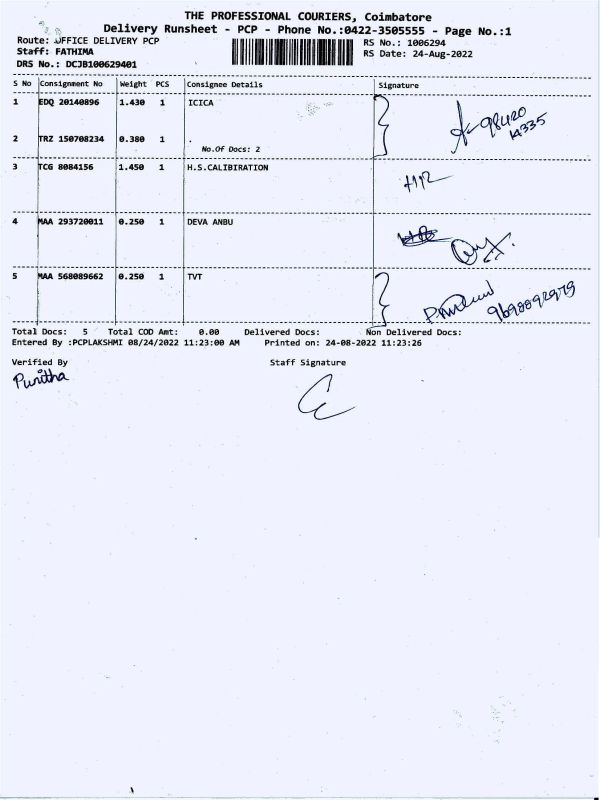 THE PROFESSIONAL COURIERS, Coimbatore
Delivery Runsheet - PCP - Phone No.:0422-3505555 - Page No.:1
Route: OFFICE DELIVERY PCP RS No.: 1006294
Staff: FATHIMA RS Date: 24-Aug-2022
DRS No.: DCJB100629401
S No Consignment No Weight PCS Consignee Details Signature
1 EDQ 20140896 1.430 1 ICICA
98420
14335
2 TRZ 150708234 0.380 1 .
No.Of Docs: 2
3 TCG 8084156 1.450 1 H.S.CALIBIRATION
4 MAA 293720011 0.250 1 DEVA ANBU
5 MAA 568089662 0.250 1 TVT
Total Docs: 5 Total COD Amt: 0.00 Delivered Docs: Non Delivered Docs:
Entered By :PCPLAKSHMI 08/24/2022 11:23:00 AM Printed on: 24-08-2022 11:23:26
Verified By Staff Signature
Punitha